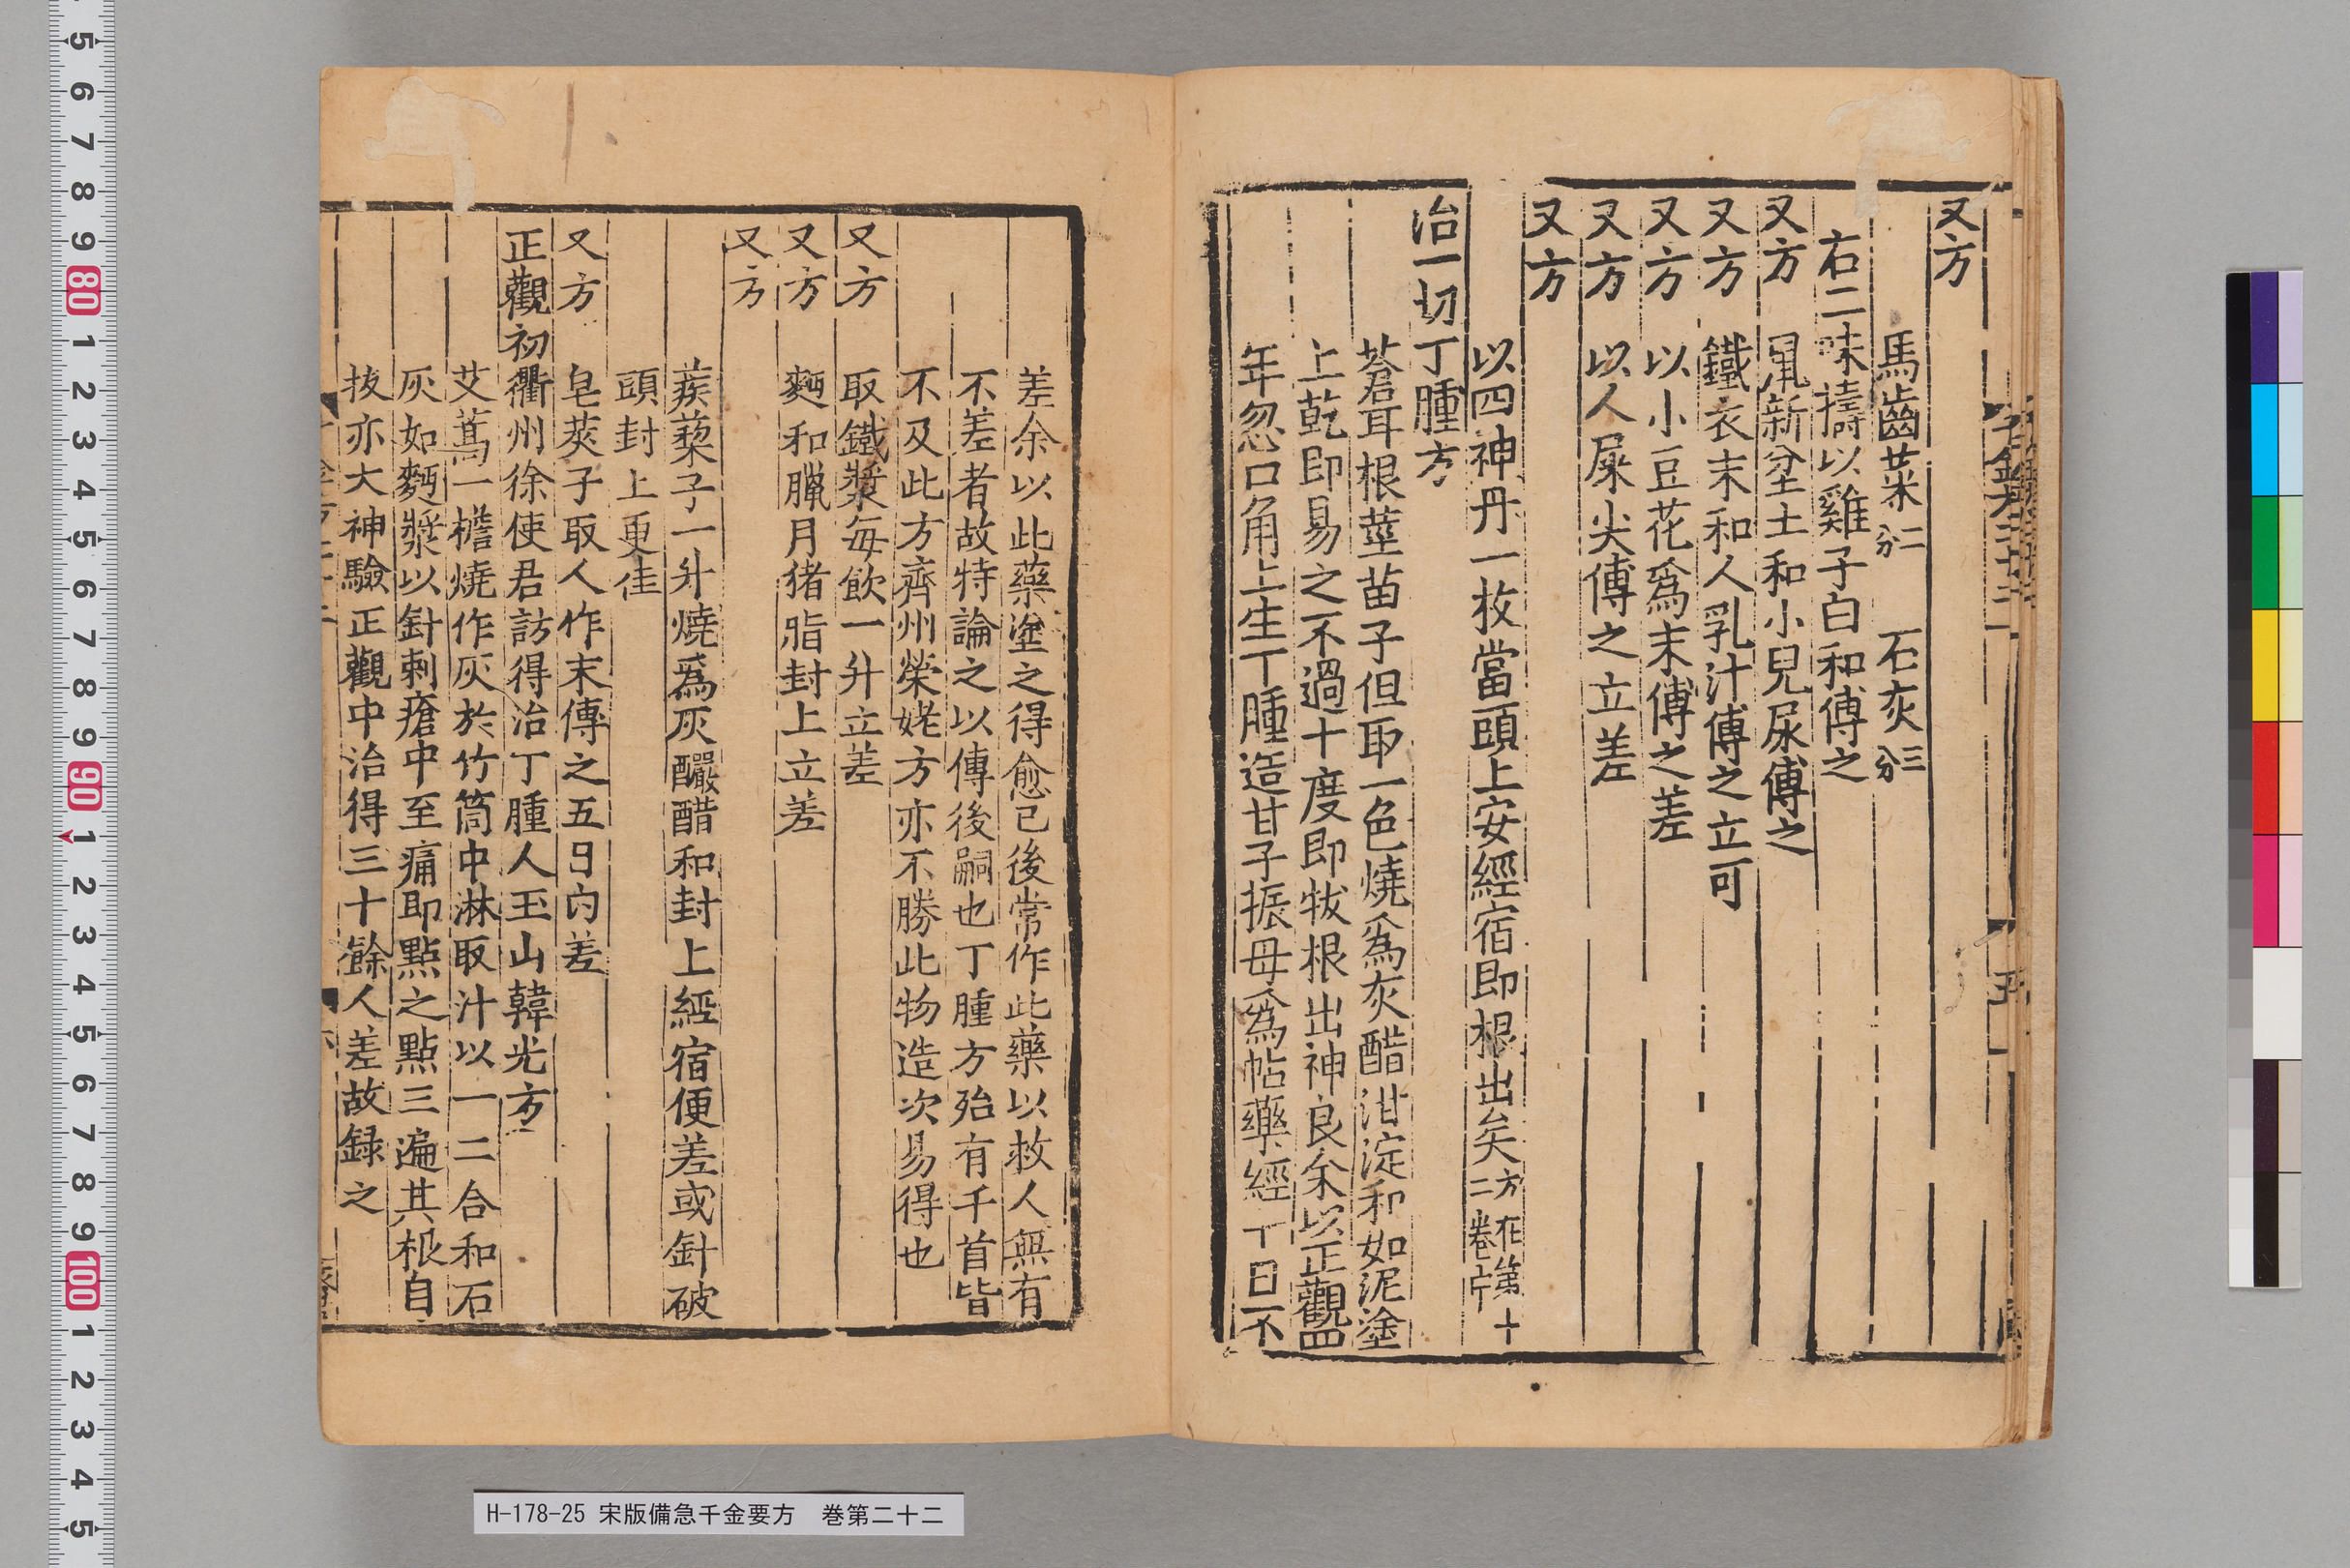 又方
馬齒菜二分 石灰三分
右二味擣以雞子白和傅之
又方 鼠新坌土和小兒尿傅之
又方 鐵衣末和人乳汁傅之立可
又方 以小豆花爲末傅之差
又方 以人屎尖傅之立差
又方
以四神丹一枚當頭上安經宿即根出矣方在第十二卷中
治一切丁腫方
蒼耳根莖苗子但取一色燒爲灰醋泔淀和如泥塗
上乾即易之不過十度即拔根出神良余以正觀四
年忽口角上生丁腫造甘子振母爲帖藥經十日不
差余以此藥塗之得愈已後常作此藥以救人無有
不差者故特論之以傳後嗣也丁腫方殆有千首皆
不及此方齊州榮姥方亦不勝此物造次易得也
又方 取鐵漿每飲一升立差
又方 麪和臘月猪脂封上立差
又方
蒺蔾子一升燒爲灰釅醋和封上經宿便差或針破
頭封上更佳
又方 皂莢子取人作末傅之五日内差
正觀初衢州徐使君訪得治丁腫人玉山韓光方
艾蒿一檐燒作灰於竹筒中淋取汁以一二合和石
灰如麪漿以針刺瘡中至痛即點之點三遍其根自
拔亦大神驗正觀中治得三十餘人差故録之
H-178-25 宋版備急千金要方 巻第二十二